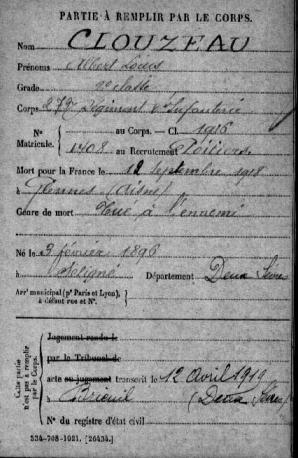 PARTIE À REMPLIR PAR LE CORPS.
Nom CLOUZEAU
Prénoms Albert Louis
Grade 2e classe
Corps 279e Régiment d'Infanterie
N° Matricule. { au Corps. — Cl. 1916
1408 au Recrutement Poitiers
Mort pour la France le 12 Septembre 1918
à Glennes (Aisne)
Genre de mort Tué à l'ennemi
Né le 3 février 1896
à Séligné Département Deux Sèvres
Arr' municipal (p' Paris et Lyon),
à défaut rue et N°.
Cette partie n'est pas à remplir par le Corps.
Jugement rendu le
par le Tribunal de
acte ou jugement transcrit le 12 Avril 1919
à (Deux Sèvres)
N° du registre d'état civil
534-708-1921. [26434.]